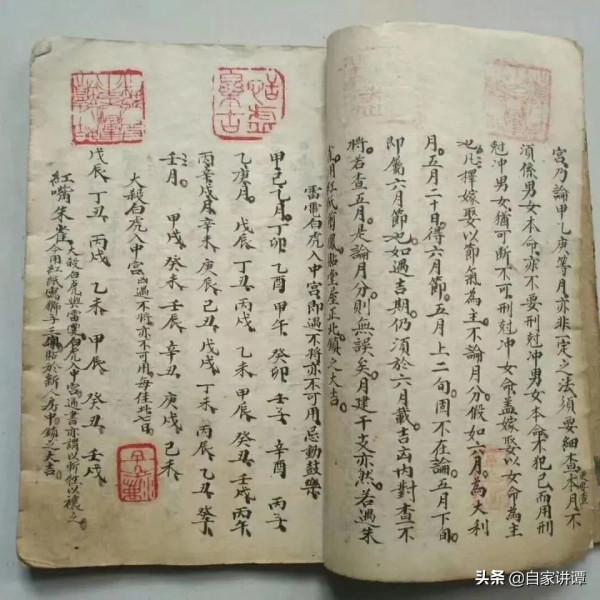 宫乃論甲乙庚等月亦非一定之法須要細查本月不
須係男女本命亦不要刑尅冲男女本命不犯已而用刑
尅冲男女猶可断不可刑尅冲女命盖嫁娶以女命為主
也凡擇嫁娶以節氣為主不論月分假如六月為大利
月五月二十日得六月節五月上二旬固不在論五月下旬
即屬六月節也如遇吉期仍須於六月載吉凶内對查不
將若查五月是論月分則無誤矣月建干支亦然若遇朱
雀用紅紙鳳凰貼堂屋正北鎮之大吉
雷霆白虎入中宫即遇不将亦不可用忌動鼓樂
甲己乙月丁卯 乙酉 甲午 癸卯 壬子 辛酉 丙子
乙庚月 戊辰 丁丑 丙戌 乙未 甲辰 癸丑 壬戌 丙午
丙辛戊月辛未 庚辰 己丑 戊戌 丁未 丙辰 乙丑 癸亥
壬月 甲戌 癸未 壬辰 辛丑 庚戌 己未
大殺白虎入中宫凶遇不將亦不可用每佳北七百
戊辰 丁丑 丙戌 乙未 甲辰 癸丑 壬戌
紅嘴朱雀
大殺白虎與雷霆白虎入中宫通書亦謂以斬牲以禳之
今用紅紙寫獅子三個貼於新人房中鎮之大吉
头条 @自家讲谭